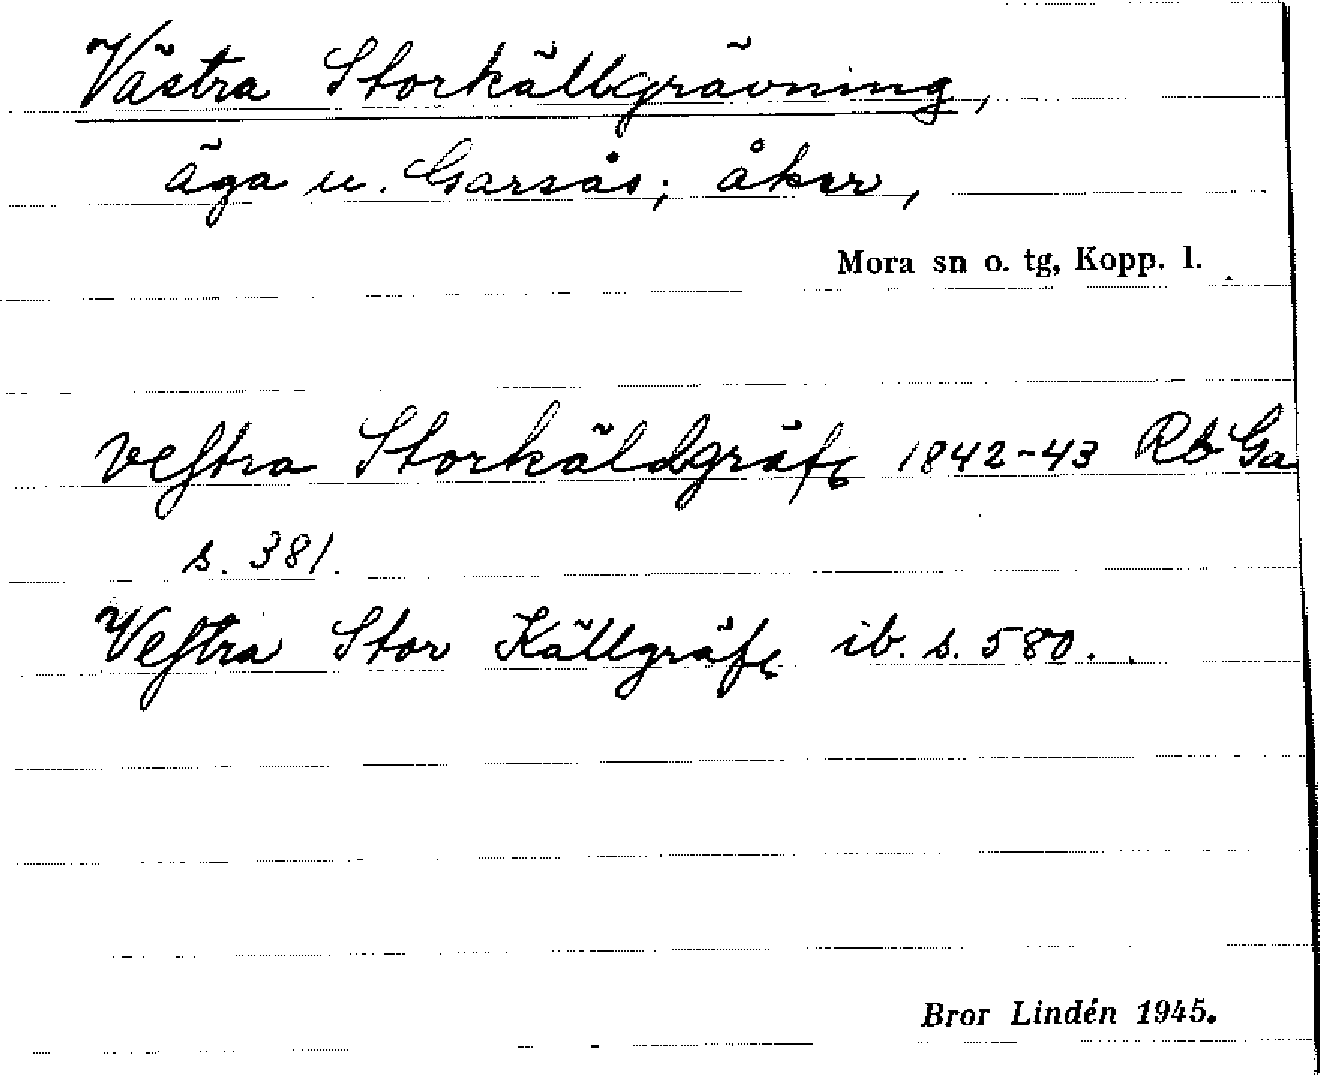 Västra Storkällgrävning,
äga u. Garsås; åker,
Mora sn o. tg, Kopp. l.
vestra Storkäldgräfn 1842-43 Rb Ga
s. 381.
Vestra Stor Källgräfn ib. s. 580.
Bror Lindén 1945.